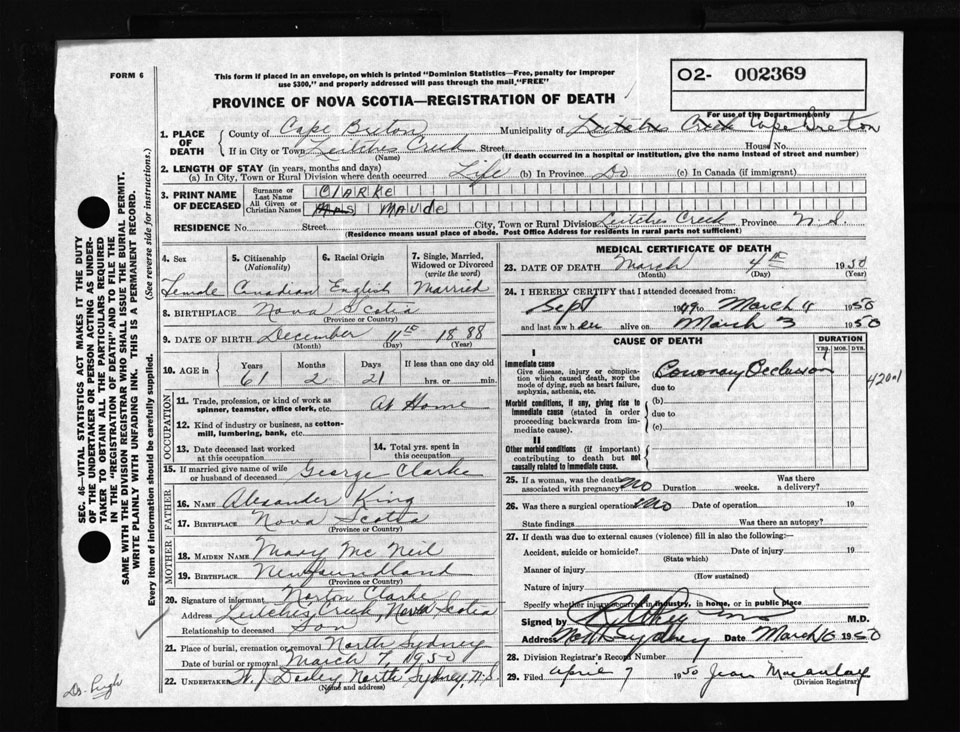 FORM 6
This form if placed in an envelope, on which is printed "Dominion Statistics—Free, penalty for improper
use $300," and properly addressed will pass through the mail "FREE"
O2- 002369
For use of the Department only
PROVINCE OF NOVA SCOTIA—REGISTRATION OF DEATH
1. PLACE OF DEATH
County of Cape Breton Municipality of Cape Breton
If in City or Town Leitches Creek Street House No.
(Name) (If death occurred in a hospital or institution, give the name instead of street and number)
2. LENGTH OF STAY (in years, months and days)
(a) In City, Town or Rural Division where death occurred Life (b) In Province Do (c) In Canada (if immigrant)
3. PRINT NAME OF DECEASED
Surname or Last Name CLARKE
All Given or Christian Names Mrs MAUDE
RESIDENCE No. Street City, Town or Rural Division Leitches Creek Province N.S.
(Residence means usual place of abode. Post Office Address for residents in rural parts not sufficient)
4. Sex
5. Citizenship (Nationality)
6. Racial Origin
7. Single, Married, Widowed or Divorced (write the word)
Female Canadian English Married
8. BIRTHPLACE Nova Scotia
(Province or Country)
9. DATE OF BIRTH December 11th 1888
(Month) (Day) (Year)
10. AGE in Years Months Days If less than one day old
61 2 21 hrs. or min.
OCCUPATION
11. Trade, profession, or kind of work as
spinner, teamster, office clerk, etc. At Home
12. Kind of industry or business, as cotton-
mill, lumbering, bank, etc.
13. Date deceased last worked at this occupation
14. Total yrs. spent in this occupation
15. If married give name of wife
or husband of deceased George Clarke
FATHER
16. NAME Alexander King
17. BIRTHPLACE Nova Scotia
(Province or Country)
MOTHER
18. MAIDEN NAME Mary Mc Neil
19. BIRTHPLACE Newfoundland
(Province or Country)
20. Signature of informant Norton Clarke
Address Leitches Creek, Nova Scotia
Relationship to deceased Son
21. Place of burial, cremation or removal North Sydney
Date of burial or removal March 7, 1950
22. UNDERTAKER W. J. Dooley, North Sydney, N.S.
(Name and address)
MEDICAL CERTIFICATE OF DEATH
23. DATE OF DEATH March 4th 1950
(Month) (Day) (Year)
24. I HEREBY CERTIFY that I attended deceased from:
Sept 1949 March 4 1950
and last saw her alive on March 3 1950
CAUSE OF DEATH
DURATION
YRS. MOS. DYS.
I
Immediate cause
Give disease, injury or complica-
tion which caused death, NOT the
mode of dying, such as heart failure,
asphyxia, asthenia, etc.
Coronary Occlusion
420.1
due to
Morbid conditions, if any, giving rise to
immediate cause (stated in order
proceeding backwards from im-
mediate cause).
(b)
due to
(c)
II
Other morbid conditions (if important)
contributing to death but not
causally related to immediate cause.
25. If a woman, was the death
associated with pregnancy? No Duration weeks. Was there a delivery?
26. Was there a surgical operation? No Date of operation 19
State findings Was there an autopsy?
27. If death was due to external causes (violence) fill in also the following:
Accident, suicide or homicide? Date of injury 19
(State which)
Manner of injury
(How sustained)
Nature of injury
Specify whether injury occurred in industry, in home, or in public place
Signed by M.D.
Address North Sydney Date March 6 1950
28. Division Registrar's Record Number
29. Filed April 7 1950 Jean Macaulay
(Division Registrar)
SEC. 46—VITAL STATISTICS ACT MAKES IT THE DUTY
OF THE UNDERTAKER OR PERSON ACTING AS UNDER-
TAKER TO OBTAIN ALL THE PARTICULARS REQUIRED
IN THE "REGISTRATION OF DEATH" AND TO FILE THE
SAME WITH THE DIVISION REGISTRAR WHO SHALL ISSUE THE BURIAL PERMIT.
WRITE PLAINLY WITH UNFADING INK. THIS IS A PERMANENT RECORD.
Every item of information should be carefully supplied. (See reverse side for instructions.)